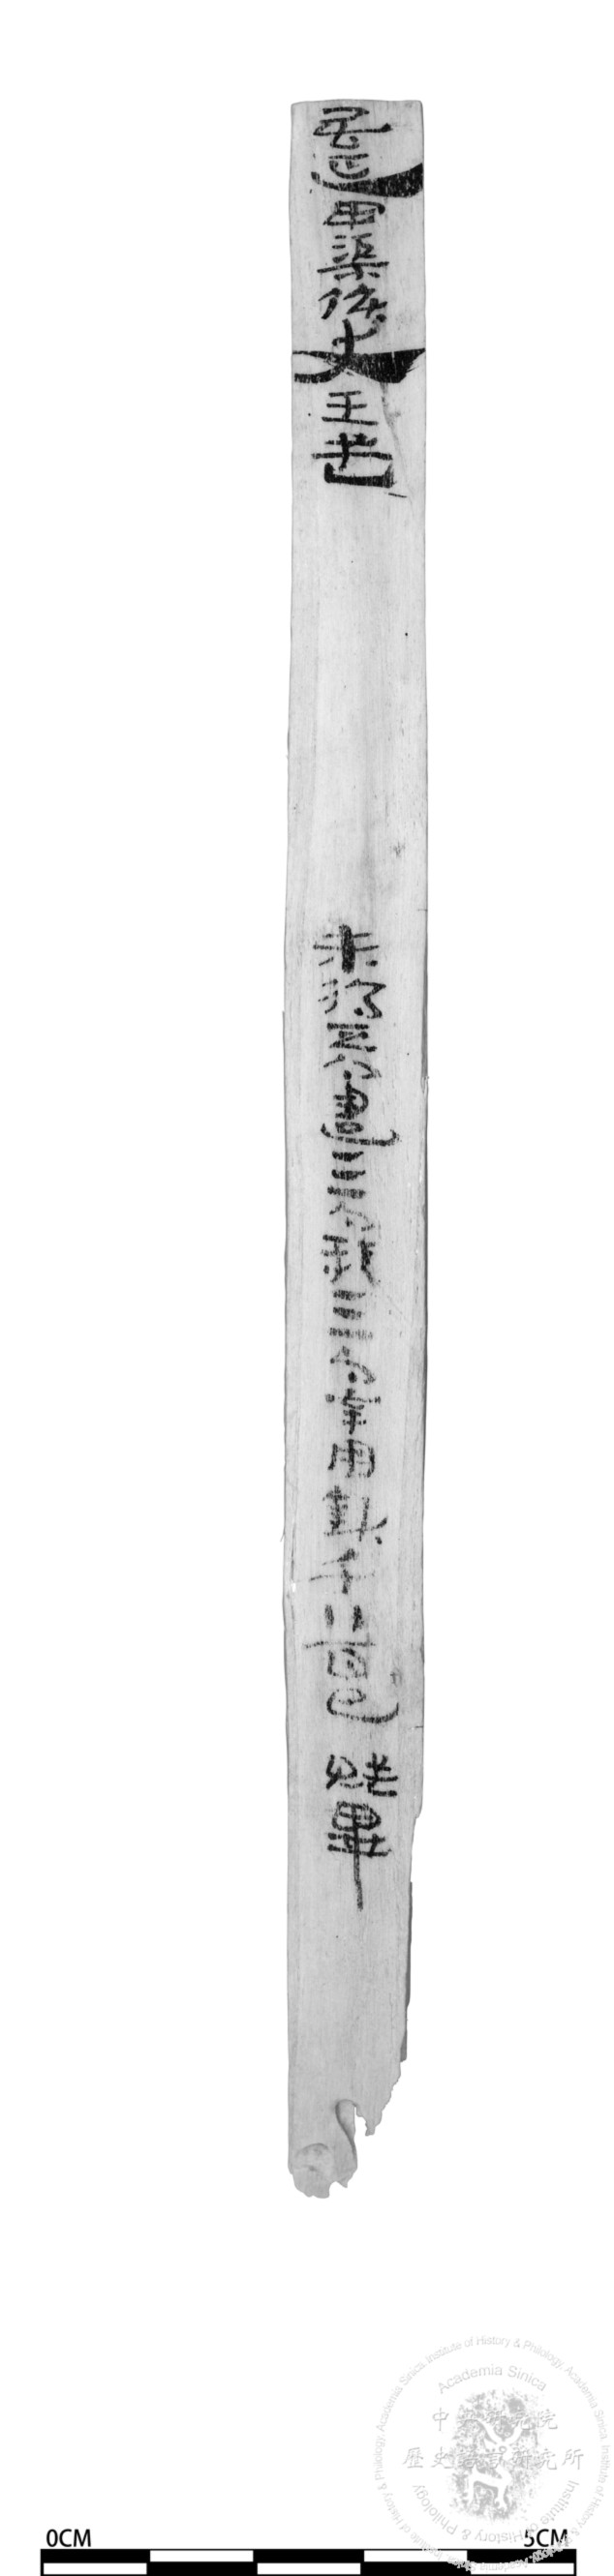 居延甲渠候史王芒　未得正月盡三月積三月奉用錢千八百已　賦畢
中央研究院
歷史語言研究所
Academia Sinica
Institute of History & Philology
0CM 5CM